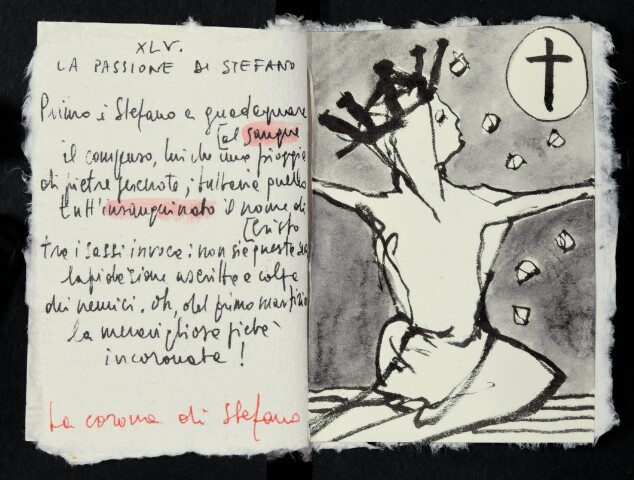 XLV.
LA PASSIONE DI STEFANO
Primo è Stefano a guadagnare
[al sangue
il compenso, lui che una pioggia
di pietre percuote; tuttavia quello
tutt'insanguinato il nome di
[Cristo
tra i sassi invoca: non sia questa sua
lapidazione ascritta a colpa
dei nemici. Oh, del primo martirio
la meravigliosa pietà
incoronata!
La corona di Stefano